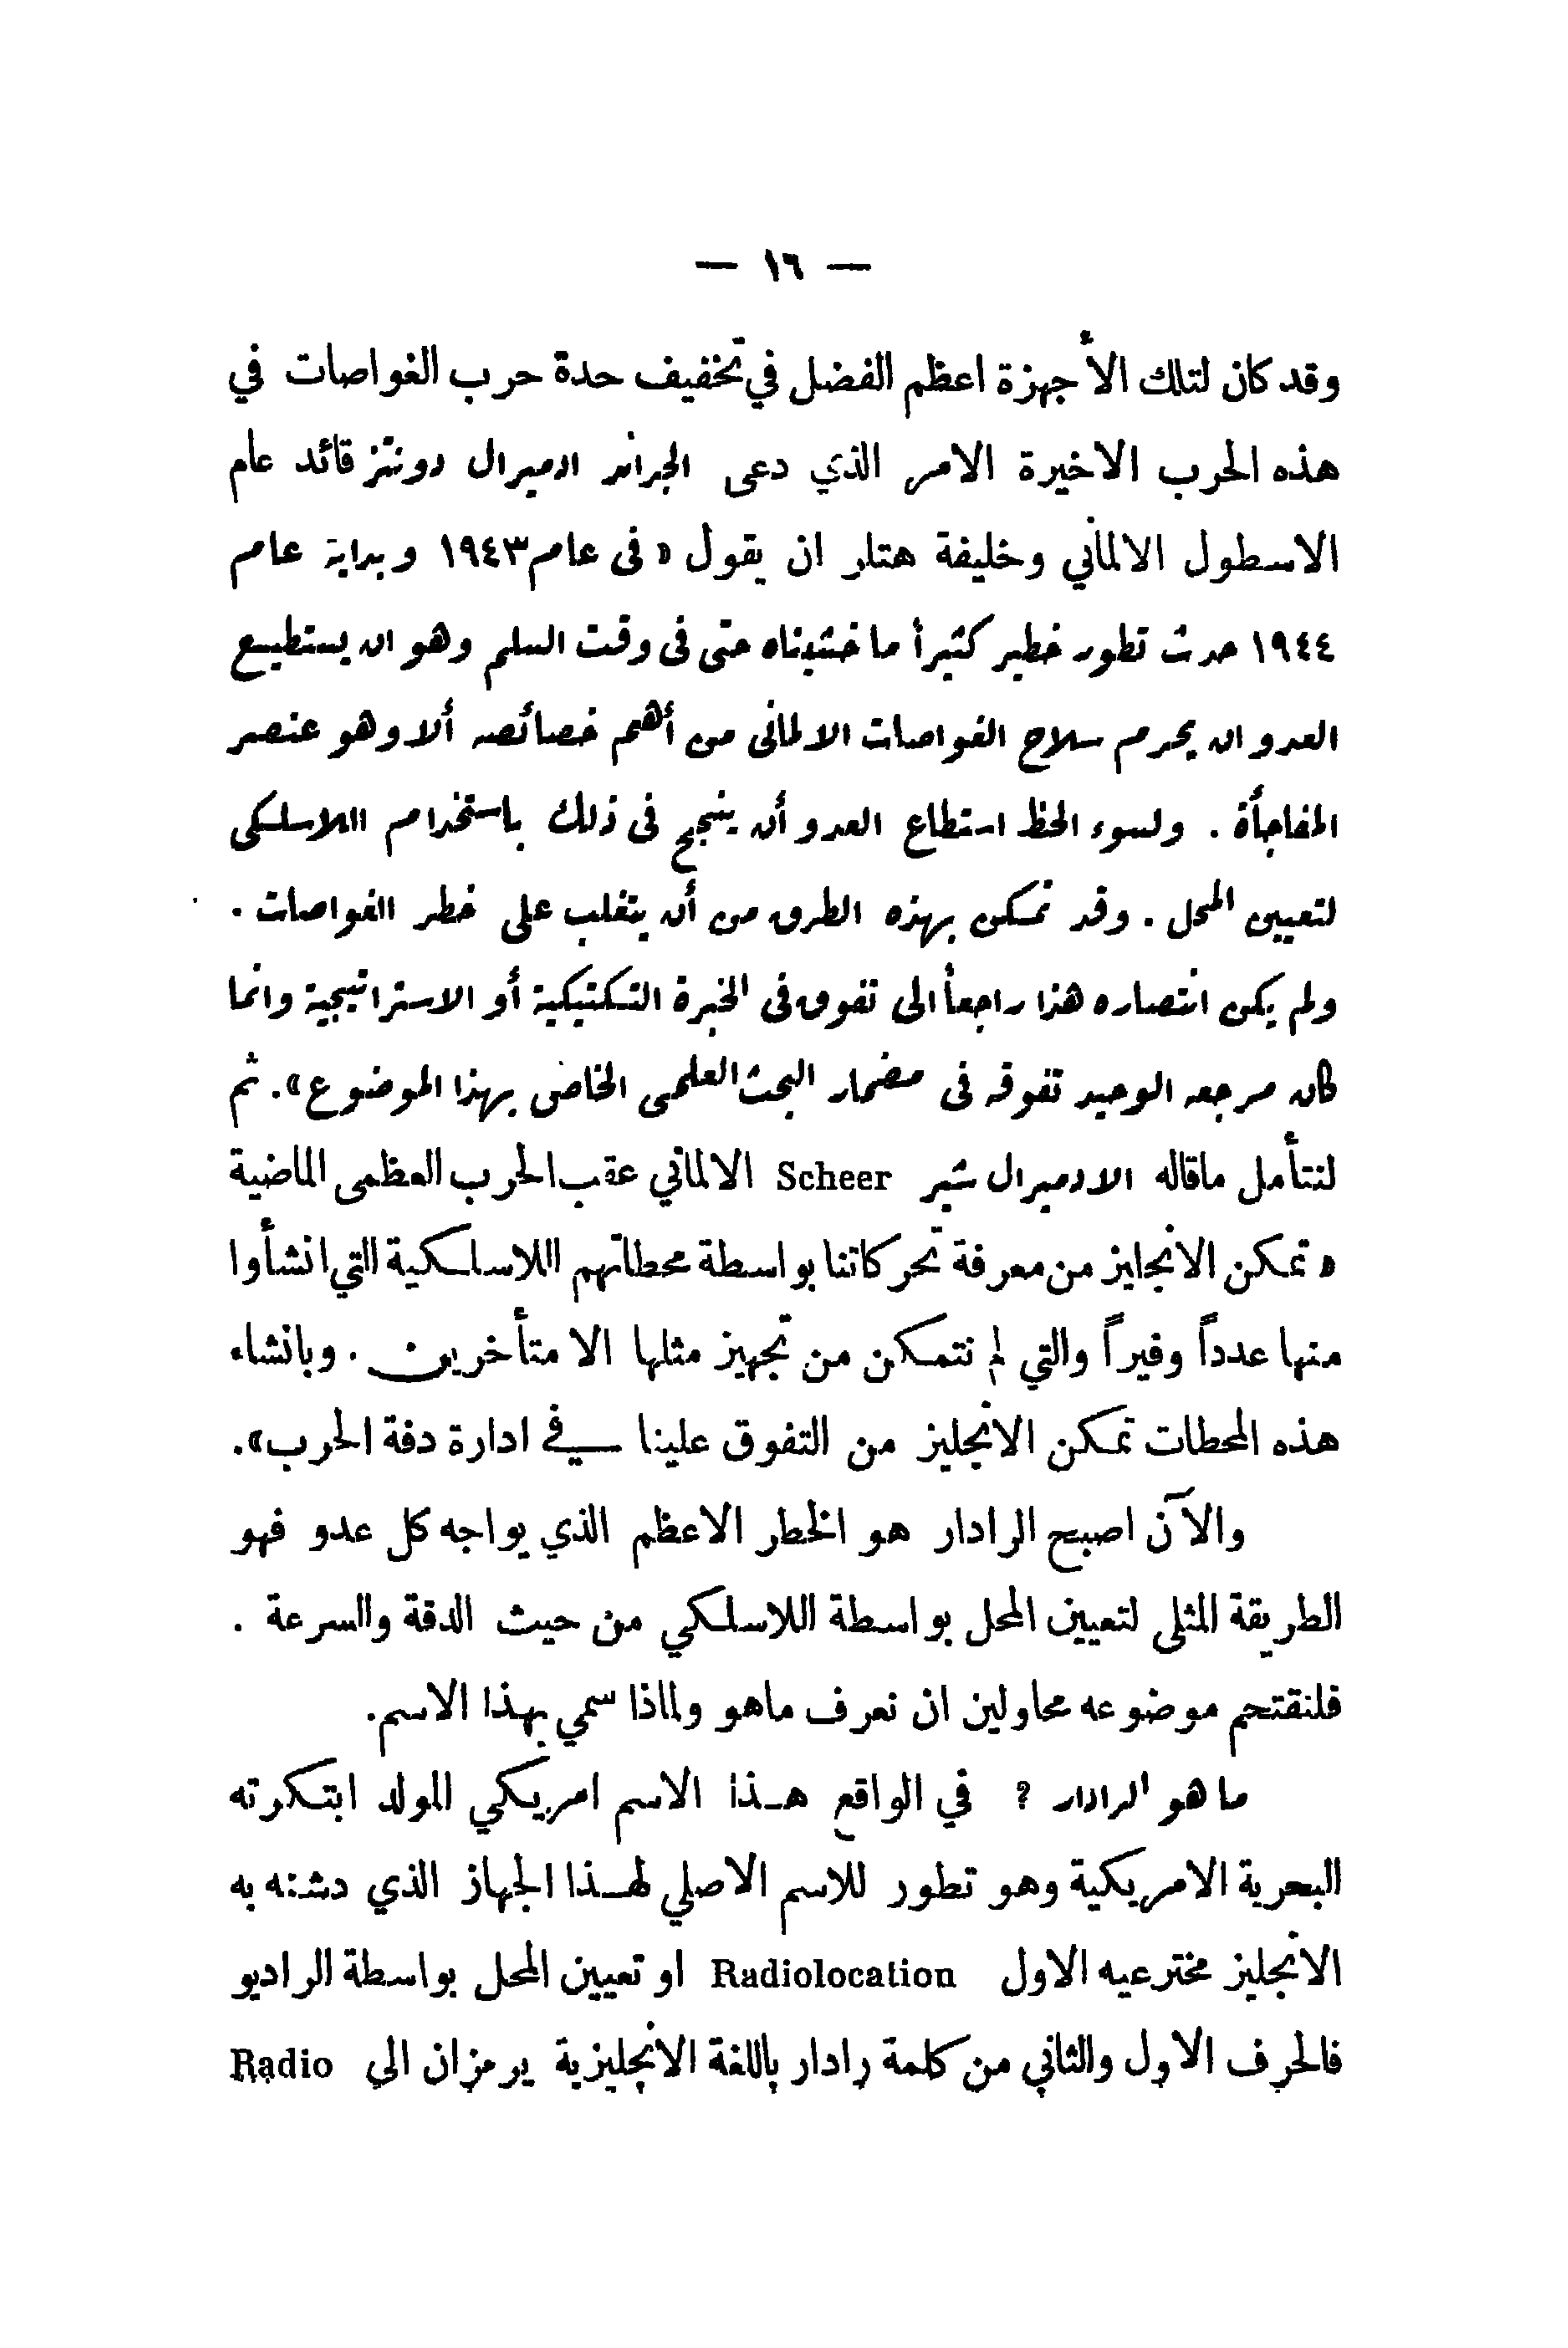 — ١٦ —
وقد كان لتلك الأجهزة اعظم الفضل في تخفيف حدة حرب الغواصات في
هذه الحرب الاخيرة الامر الذي دعى الجراند ادميرال دونتز قائد عام
الاسطول الالماني وخليفة هتلر ان يقول « فى عام ١٩٤٣ وبداية عام
١٩٤٤ حدث تطور خطير كثيراً ما خشيناه حتى فى وقت السلم وهو ان يستطيع
العدو ان يحرم سلاح الغواصات الالمانى من أهم خصائصه ألا وهو عنصر
المفاجأة . ولسوء الحظ استطاع العدو أن ينجح فى ذلك باستخدام اللاسلكى
لتعيين المحل . وقد تمكن بهذه الطرق من أن يتغلب على خطر الغواصات .
ولم يكن انتصاره هذا راجعاً الى تفوق فى الخبرة التكتيكية أو الاستراتيجية وانما
كان مرجعه الوحيد تفوقه فى مضمار البحث العلمى الخاص بهذا الموضوع ». ثم
لنتأمل ماقاله الادميرال شير Scheer الالماني عقب الحرب العظمى الماضية
« تمكن الانجليز من معرفة تحركاتنا بواسطة محطاتهم اللاسلكية التي انشأوا
منها عدداً وفيراً والتي لم نتمكن من تجهيز مثلها الا متأخرين . وبانشاء
هذه المحطات تمكن الانجليز من التفوق علينا في ادارة دفة الحرب ».
والآن اصبح الرادار هو الخطر الاعظم الذي يواجه كل عدو فهو
الطريقة المثلى لتعيين المحل بواسطة اللاسلكي من حيث الدقة والسرعة .
فلنقتحم موضوعه محاولين ان نعرف ماهو ولماذا سمي بهذا الاسم.
ما هو الرادار ? في الواقع هـذا الاسم امريكي المولد ابتكرته
البحرية الامريكية وهو تطور للاسم الاصلي لهـذا الجهاز الذي دشنه به
الانجليز مخترعيه الاول Radiolocation او تعيين المحل بواسطة الراديو
فالحرف الاول والثاني من كلمة رادار باللغة الانجليزية يرمزان الى Radio